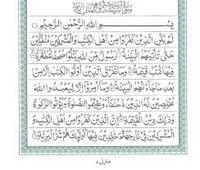 بِسْمِ اللهِ الرَّحْمٰنِ الرَّحِيْمِ
لَمْ يَكُنِ الَّذِيْنَ كَفَرُوْا مِنْ اَهْلِ الْكِتٰبِ وَالْمُشْرِكِيْنَ مُنْفَكِّيْنَ
حَتّٰى تَاْتِيَهُمُ الْبَيِّنَةُ رَسُوْلٌ مِّنَ اللهِ يَتْلُوْا صُحُفًا مُّطَهَّرَةً
فِيْهَا كُتُبٌ قَيِّمَةٌ وَمَا تَفَرَّقَ الَّذِيْنَ اُوْتُوا الْكِتٰبَ اِلَّا مِنْ
بَعْدِ مَا جَآءَتْهُمُ الْبَيِّنَةُ وَمَآ اُمِرُوْٓا اِلَّا لِيَعْبُدُوا اللهَ
مُخْلِصِيْنَ لَهُ الدِّيْنَ حُنَفَآءَ وَيُقِيْمُوا الصَّلٰوةَ وَيُؤْتُوا الزَّكٰوةَ
وَذٰلِكَ دِيْنُ الْقَيِّمَةِ اِنَّ الَّذِيْنَ كَفَرُوْا مِنْ اَهْلِ الْكِتٰبِ وَ
الْمُشْرِكِيْنَ فِيْ نَارِ جَهَنَّمَ خٰلِدِيْنَ فِيْهَا اُولٰٓئِكَ هُمْ شَرُّ الْبَرِيَّةِ
منزل ٧